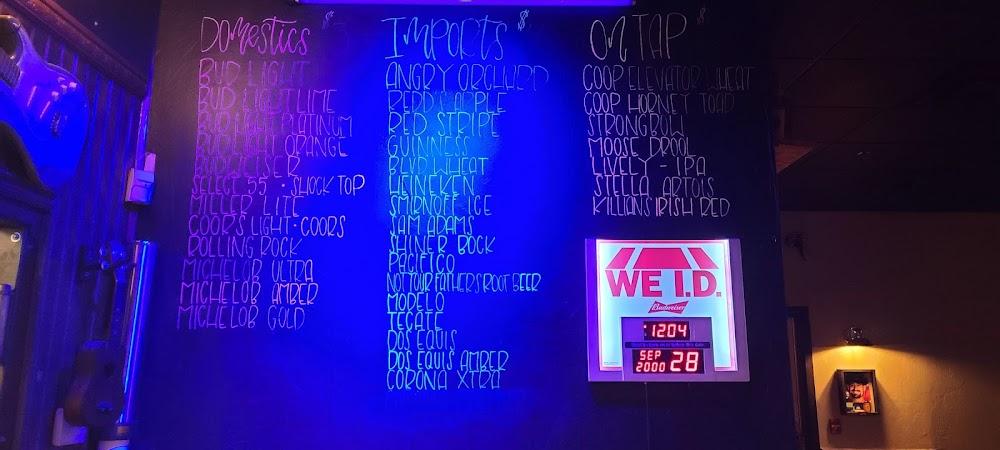 DOMESTICS $
BUD LIGHT
BUD LIGHT LIME
BUD LIGHT PLATINUM
BUD LIGHT ORANGE
BUDWEISER
SELECT 55 · SHOCK TOP
MILLER LITE
COORS LIGHT · COORS
ROLLING ROCK
MICHELOB ULTRA
MICHELOB AMBER
MICHELOB GOLD
IMPORTS $
ANGRY ORCHARD
REDD'S APPLE
RED STRIPE
GUINNESS
BLVD WHEAT
HEINEKEN
SMIRNOFF ICE
SAM ADAMS
SHINER BOCK
PACIFICO
NOT YOUR FATHERS ROOT BEER
MODELO
TECATE
DOS EQUIS
DOS EQUIS AMBER
CORONA XTRA
ON TAP $
COOP ELEVATOR WHEAT
COOP HORNET TOAD
STRONGBOW
MOOSE DROOL
LIVELY - IPA
STELLA ARTOIS
KILLIANS IRISH RED
WE I.D.
Budweiser
1204
SEP
2000 28